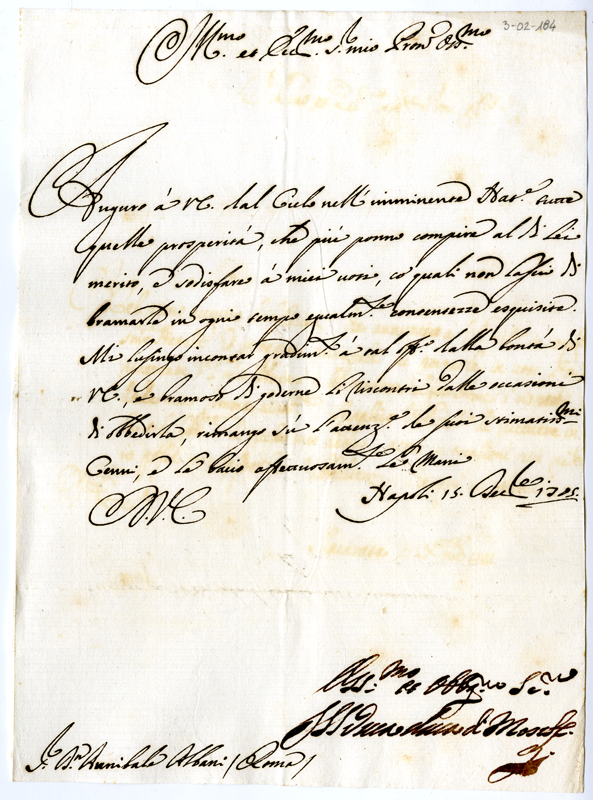 3-02-184
Ill.mo et Ecc.mo S.r mio Pron. Oss.mo
Auguro à V.E. dal Cielo nell' imminente Nat.e tutte
quelle prosperità, che più ponno compire al di Lei
merito, e sodisfare à miei voti, co' quali non lascio di
bramarle in ogni tempo egualm.te contentezze esquisite.
Mi lusingo incontar gradim.to à tal off.o dalla bontà di
V.E., e bramoso di goderne li riscontri dalle occasioni
di obbedirla, rimango sù l'attenz.e de suoi stimatiss.mi
Cenni, e le bacio affettuosam.te le Mani
Napoli 15. Dec.le 1705.
D.V.E.
Aff.mo et Obblig.mo Se.re
Duca
S.r D. Annibale Albani (Roma)